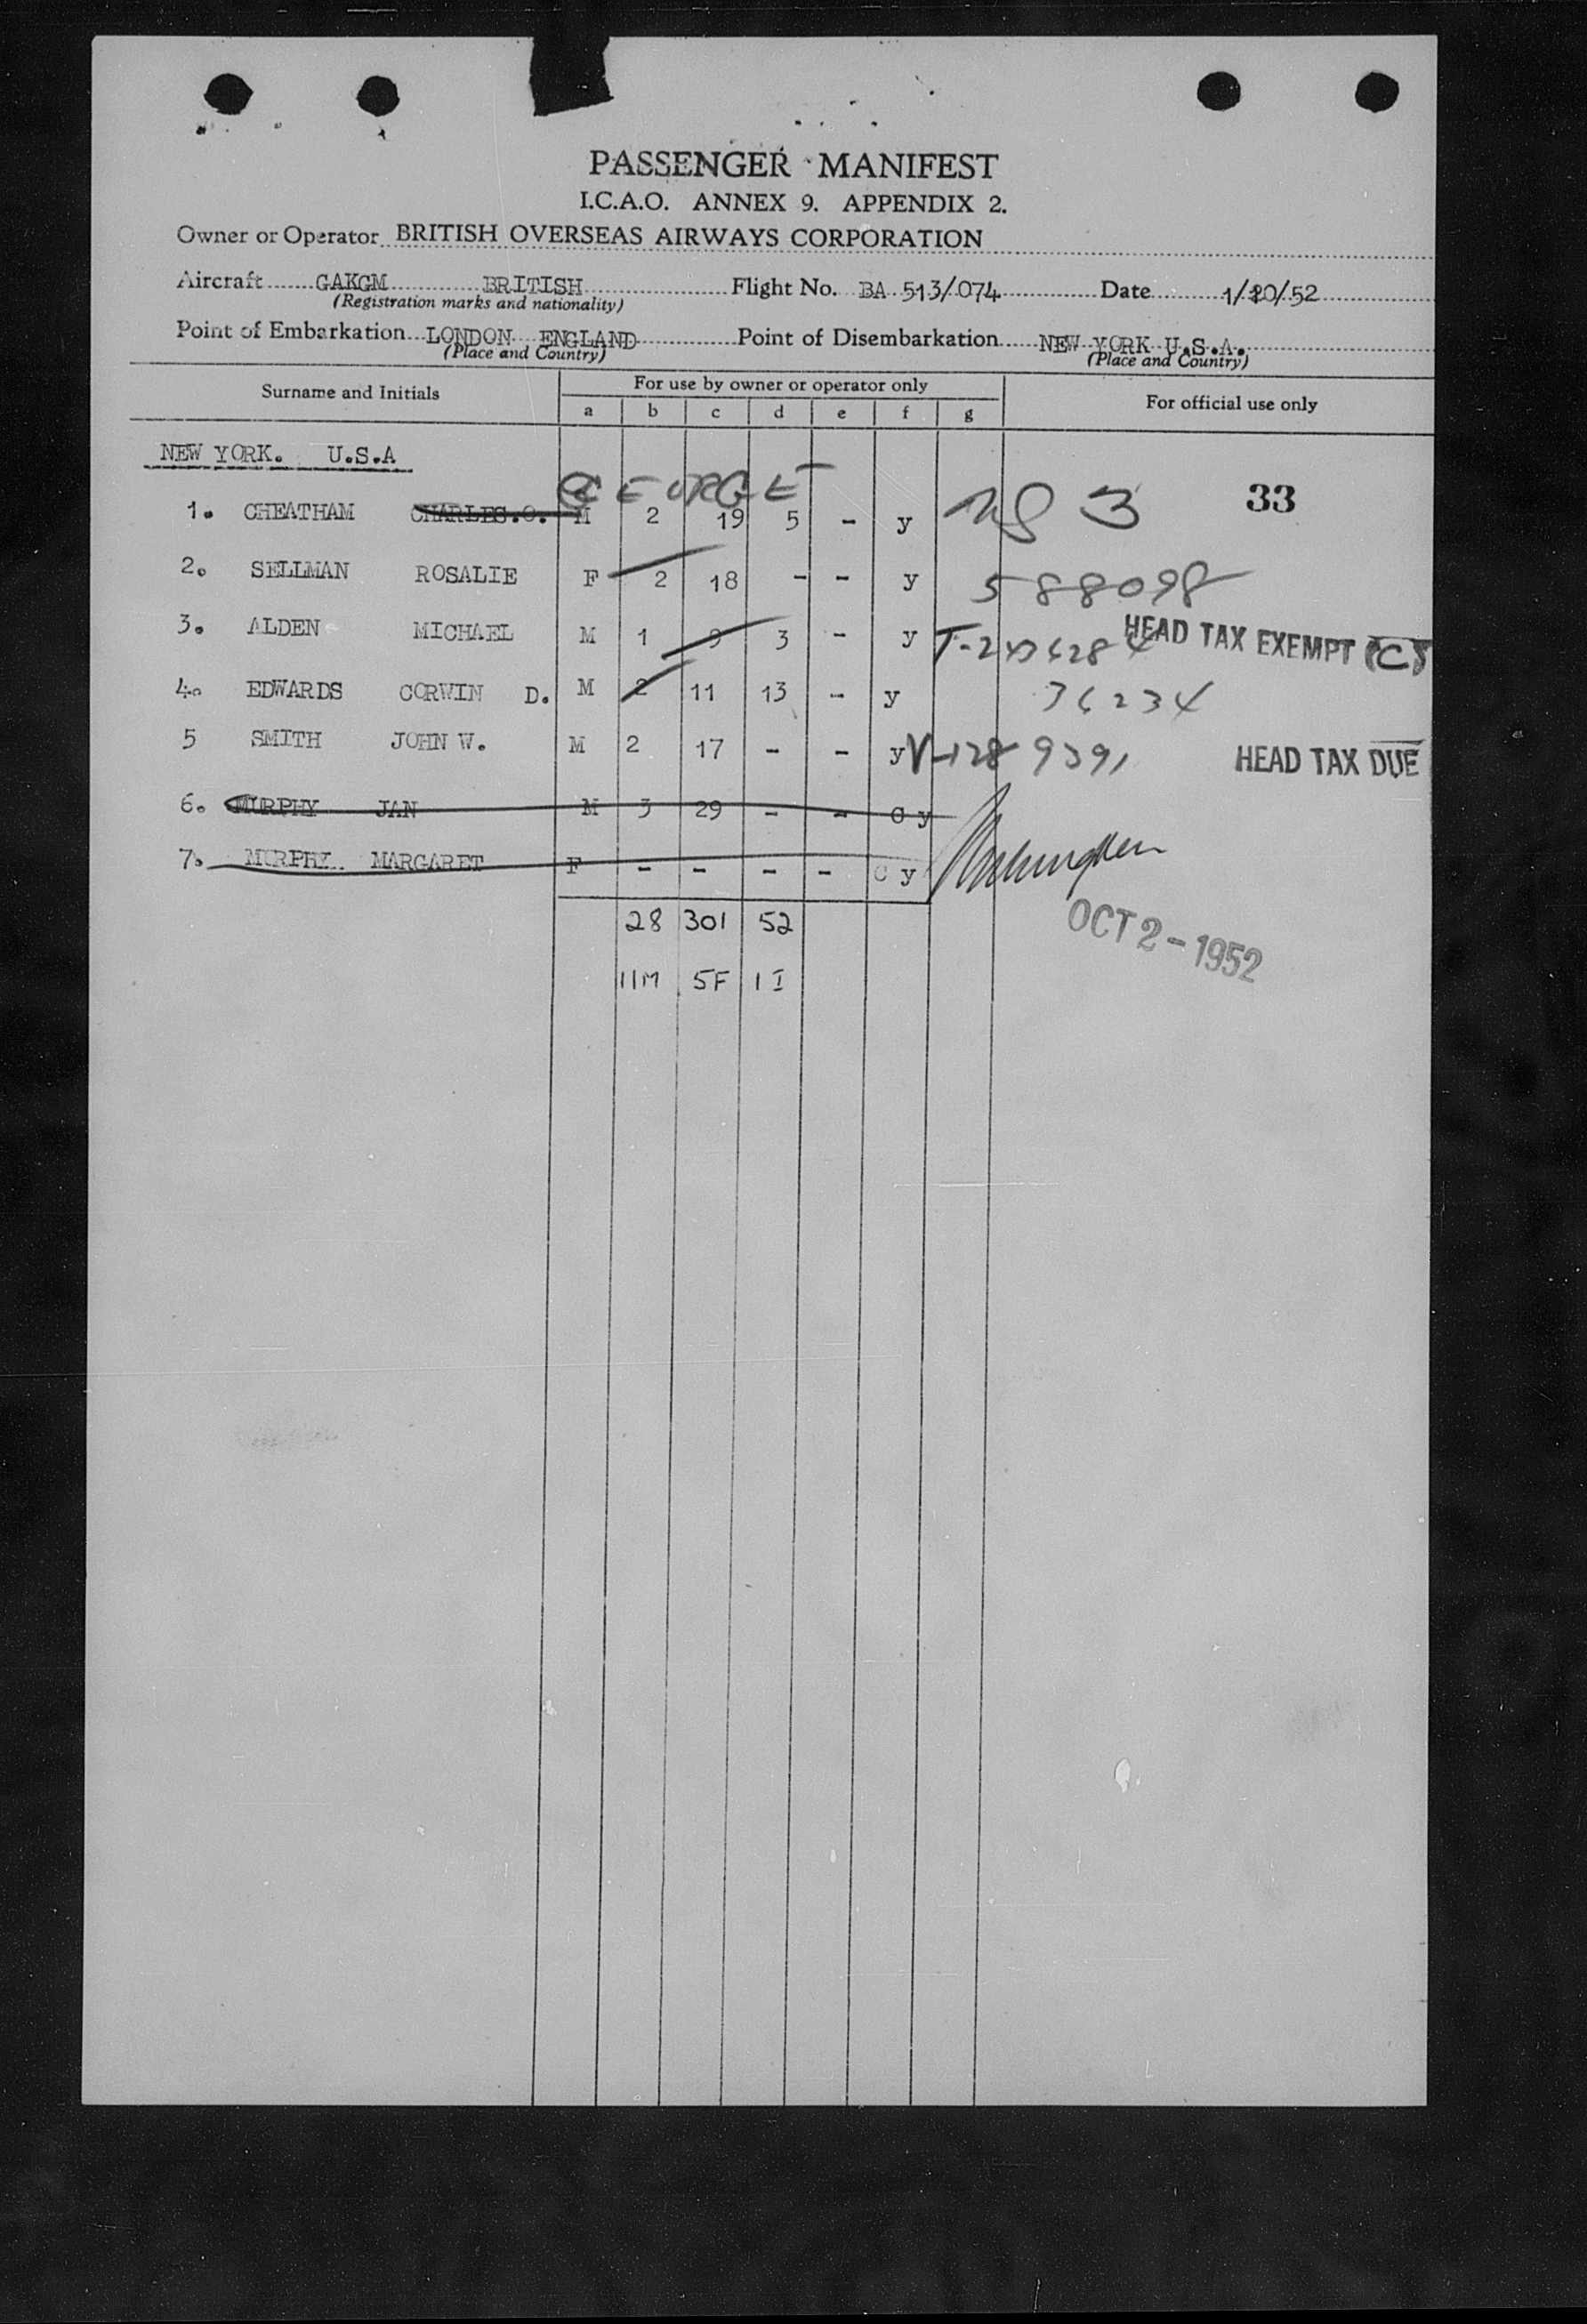 PASSENGER MANIFEST
I.C.A.O. ANNEX 9. APPENDIX 2.
Owner or Operator BRITISH OVERSEAS AIRWAYS CORPORATION
Aircraft GAKGM BRITISH Flight No. BA 513/074 Date 1/10/52
(Registration marks and nationality)
Point of Embarkation LONDON ENGLAND Point of Disembarkation NEW YORK U.S.A.
(Place and Country) (Place and Country)
Surname and Initials For use by owner or operator only For official use only
a b c d e f g
NEW YORK. U.S.A
GEORGE
33
1. CHEATHAM CHARLES.O. M 2 19 5 - y
2. SELLMAN ROSALIE F 2 18 - - y 588098
3. ALDEN MICHAEL M 1 9 3 - y HEAD TAX EXEMPT (C)
4. EDWARDS CORWIN D. M 2 11 13 - y 36234
5 SMITH JOHN W. M 2 17 - - y V-128 9391 HEAD TAX DUE
6. MURPHY JAN M 3 29 - - C y
7. MURPHY. MARGARET F - - - - C y
28 301 52
OCT 2 - 1952
11M 5F 1 I